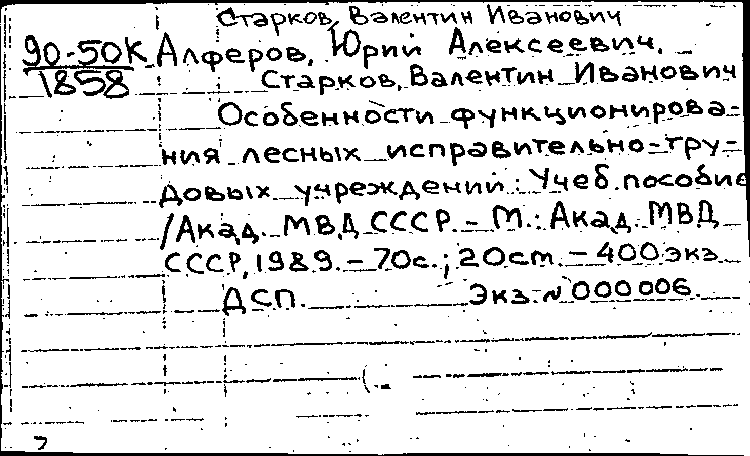 Старков, Валентин Иванович
90-50К Алферов, Юрий Алексеевич,
1858 Старков, Валентин Иванович
Особенности функционирова-
ния лесных исправительно-тру-
довых учреждений: Учеб. пособие
/Акад. МВД СССР. – М.: Акад. МВД
СССР, 1989. – 70с.; 20см. – 400 экз.
ДСП. Экз. № 000006.